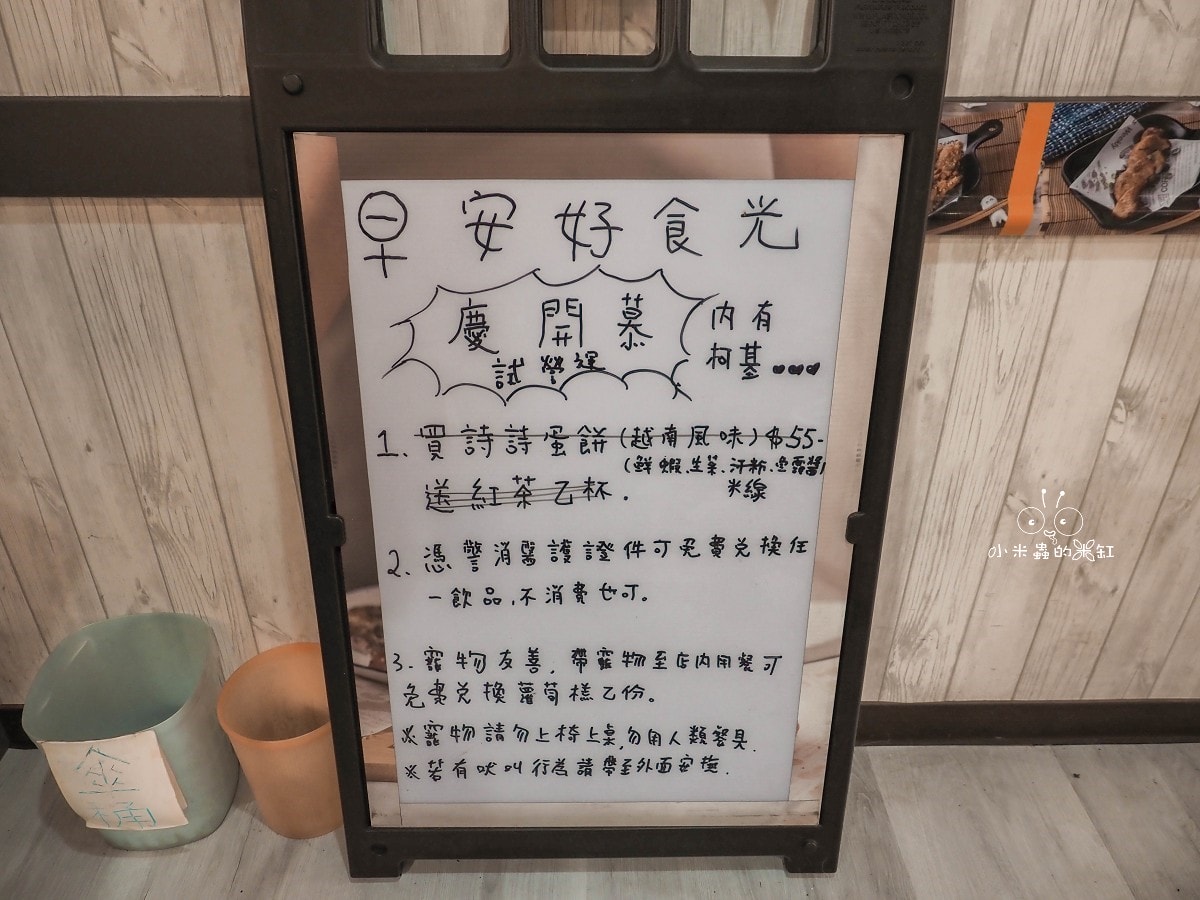 早安好食光
慶開慕
試營運
內有
柯基
1. 買詩詩蛋餅(越南風味)$55-
(鮮蝦.生菜.河粉.魚露醬)
米線
送紅茶乙杯.
2. 憑警消醫護證件可免費兌換任
一飲品,不消費也可。
3. 寵物友善,帶寵物至店內用餐可
免費兌換蘿蔔糕乙份。
※寵物請勿上椅上桌,勿用人類餐具.
※若有吠叫行為請帶至外面安撫.
傘
桶
小米蟲的米缸